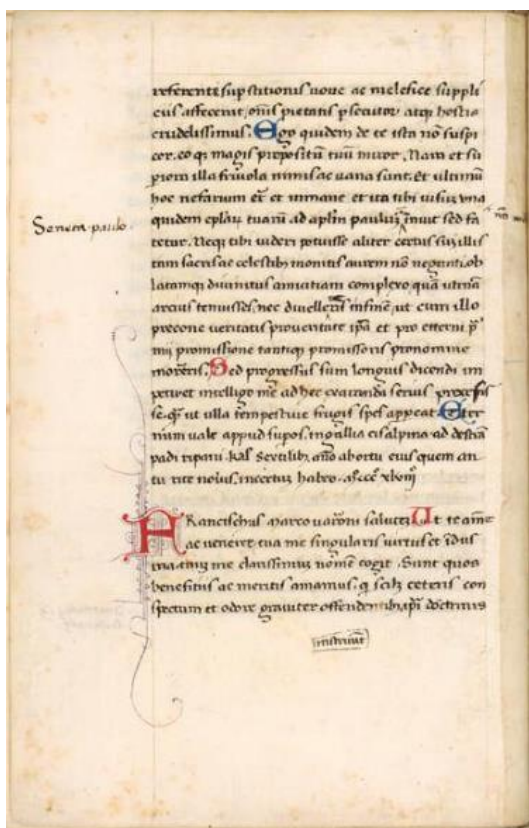 referente supstitionis noue ac melefice suppli
ciis affecerit, oīns pietatis psecutor atqȝ hostis
crudelissimus. Ego quidem de te ista nō suspi
cor, eo qȝ magis propositū tuū miror. Nam et su
piora illa friuola nimis ac uana sunt. Et ultimū
hoc nefarium et inmane et ita tibi uisuȝ
Seneca paulo.
quidem eplāȝ tuarū ad aplm pauluȝ īnuit sed fa
nō mō
tetur. Neqȝ tibi uideri potuisse aliter certus suȝ illis
tam sacris ac celestibȝ monitis aurem nō neganti, ob
latamqȝ diuinitus amicitiam complexo quā utinā
arcius tenuisses, nec diuelleris infine, ut cum illo
precone ueritatis pro ueritate ipā et pro etterni p̄
mii promissione tantiqȝ promissoris pro nomine
moreris. Sed progressus sum longius dicendi im
petu et intelligo me ad hec exaranda serius
se qȝ ut ulla tempestiue frugis spes appeat. Eter
num uale appud supos. īngallia cisalpina ad dextrā
padi ripam. kal Sextilibȝ, āno ab ortu eius quem an
tu rite noueis, incertus habeo.
FRancischus Marco uaroni salutez. Ut te ame
ac uenerer tua me singularis uirtus et īdus
tria tuuȝ me clarissimū nomē cogit. Sunt quos
benefitiis ac meritis amamus. q scilȝ ceteris con
spectum et odore grauiter offendentibȝ, apī doctrinis
instruunt